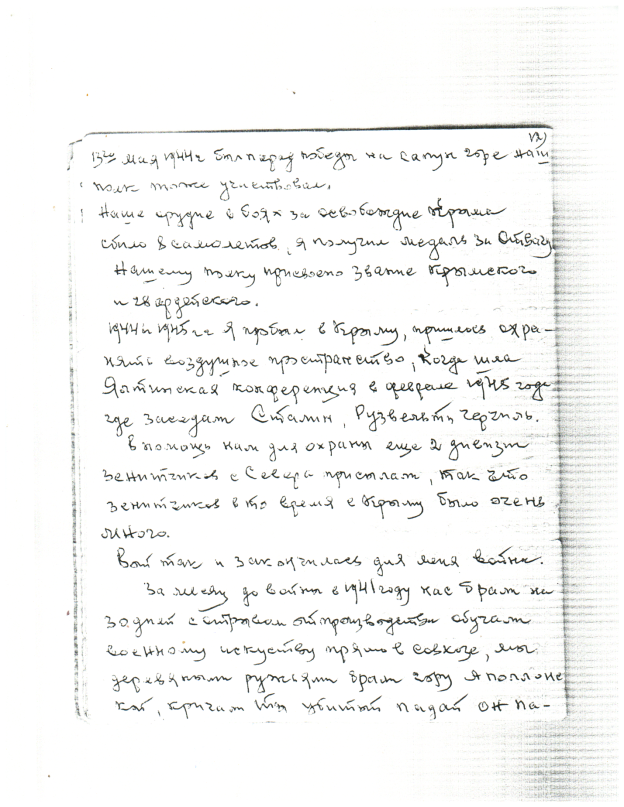 12)
13го мая 1944 г был перед победы на Сапун горе наш
полк тоже участвовал.
Наше орудие в боях за освобождние Крыма
сбило 8 самолетов, я получил медаль За Отвагу
Нашему полку присвоено звание Крымского
и гвардейского.
1944 и 1945 г.г Я пробыл в Крыму, пришлось охра-
нять воздушное пространство, когда шла
Ялтинская конференция в феврале 1945 года
где заседали Сталин, Рузвельт, Черчиль.
В помощь нам для охраны еще 2 дивизии
зенитчиков с Севера прислали, так что
зенитчиков в то время в Крыму было очень
много.
Вот так и закончилась для меня война.
За месяц до войны в 1941 году нас брали на
30 дней с отрывом от производства обучали
военному искуству прямо в совхозе, мы
деревяными ружьями брали гору
кой, кричали ты убитый падай он па-